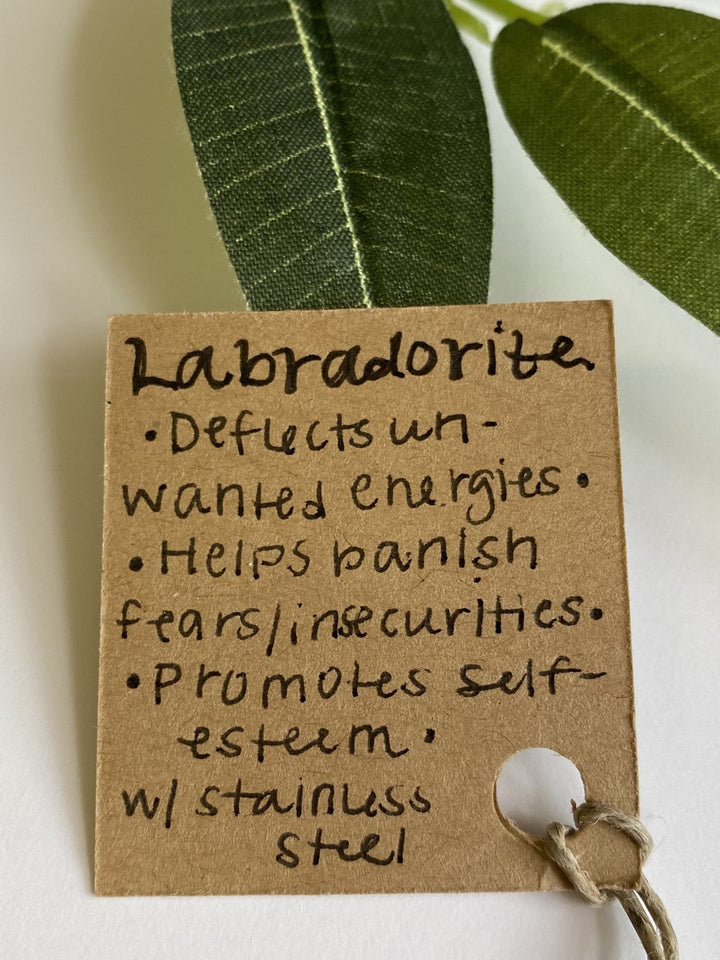 Labradorite
•Deflects un-
wanted energies•
•Helps banish
fears/insecurities•
•Promotes self-
esteem•
w/ stainless
steel